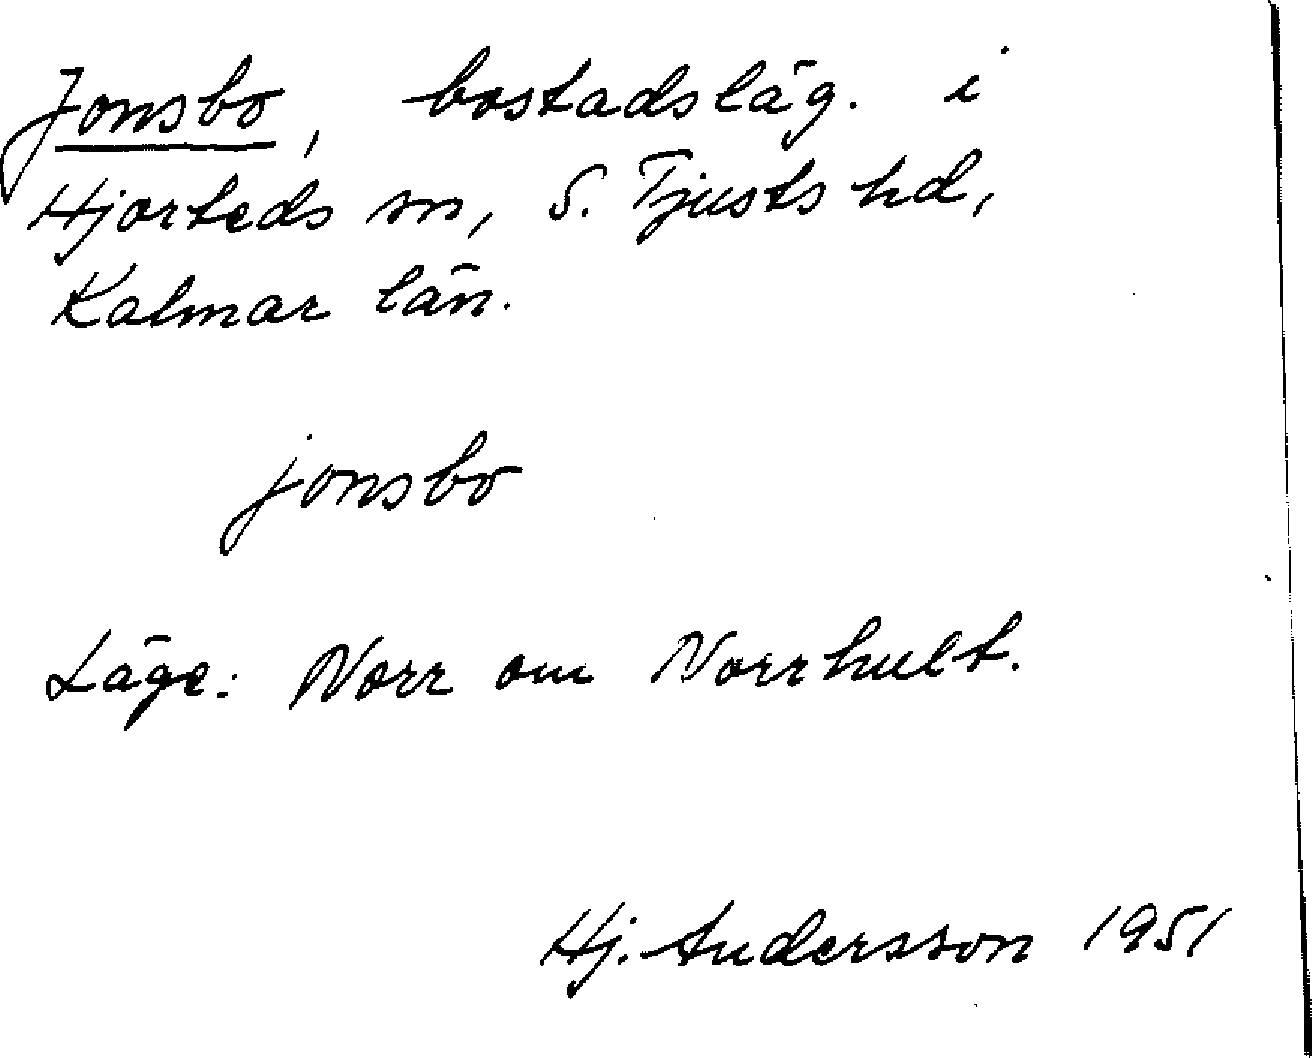 Jonsbo, bostadsläg. i
Hjorteds sn, S. Tjusts hd,
Kalmar län.
jonsbo
Läge: Norr om Norrhult.
Hj. Andersson 1951